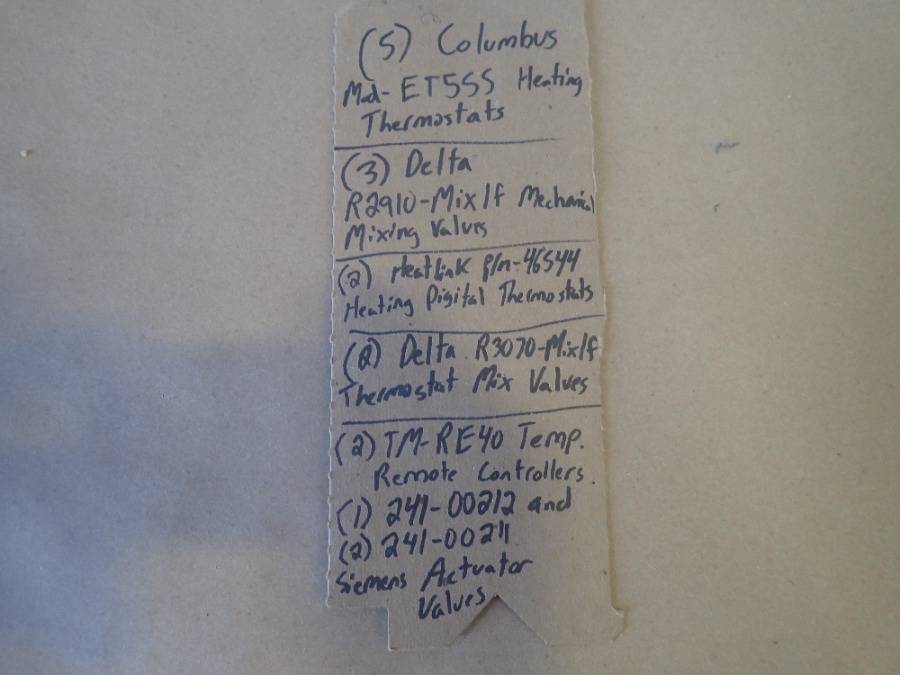 (5) Columbus
Mod- ET5SS Heating
Thermostats
(3) Delta
R2910-Mix/f Mechanical
Mixing Valves
(2) Heatlink P/n-46544
Heating Digital Thermostats
(2) Delta R3070-Mix/f
Thermostat Mix Valves
(2) TM-RE40 Temp.
Remote Controllers.
(1) 241-00212 and
(2) 241-00211
Siemens Actuator
Valves